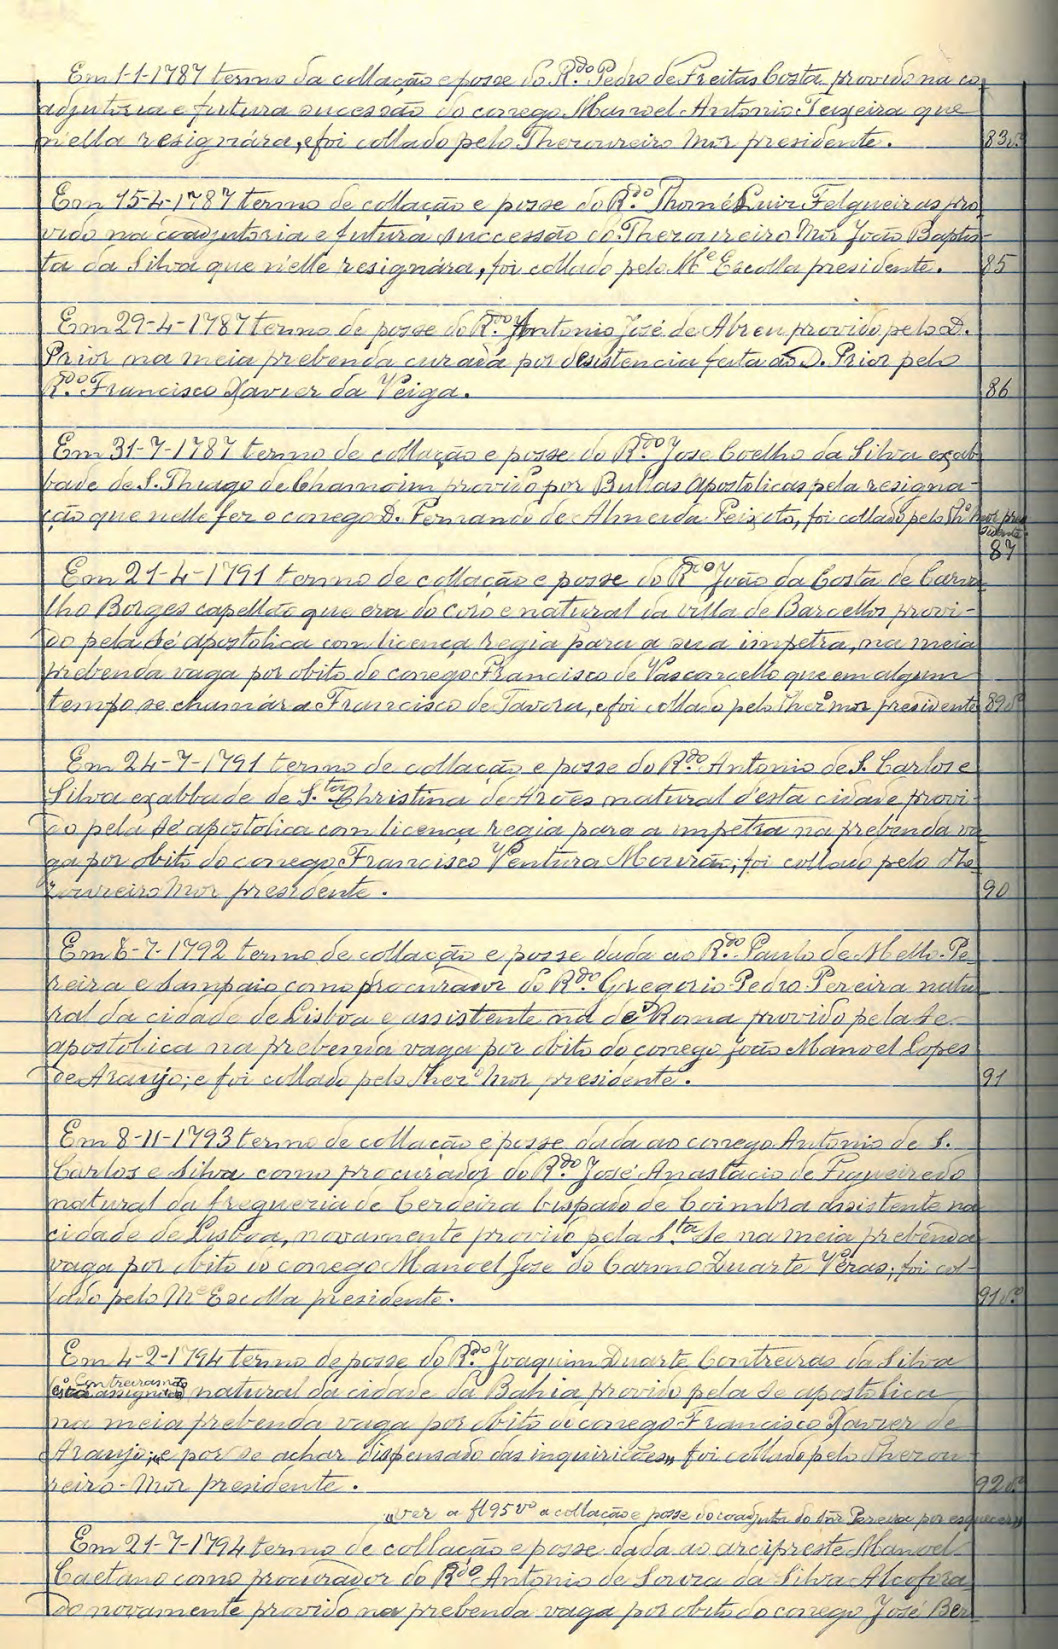 Em 1-1-1787 termo da collação e posse do R.do Pedro de Freitas Costa provido na co-
adjutoria e futura sucessão do conego Manoel Antonio Teixeira que
n'ella resignára, e foi collado pelo Thezoureiro Mor presidente. 83vº
Em 15-4-1787 termo de collação e posse do R.do Thomé Luiz Felgueiras pro-
vido na coadjutoria e futura successão do Thezoureiro Mor João Baptis-
ta da Silva que n'elle resignára, foi collado pelo Me Escolla presidente. 85
Em 29-4-1787 termo de posse do R.do Antonio José de Abreu provido pelo D.
Prior na meia prebenda curada por desistencia feita ao D. Prior pelo
R.do Francisco Xavier da Veiga. 86
Em 31-7-1787 termo de collação e posse do R.do Jose Coelho da Silva exab-
bade de S. Thiago de Chamoim provido por Bullas Apostolicas pela resigna-
ção que nelle fez o conego D. Fernando de Almeida Peixoto, foi collado pelo Thº Mor pre-
sidente. 87
Em 21-4-1791 termo de collação e posse do R.do João da Costa de Carva-
lho Borges capellão que era do coro e natural da villa de Barcellos provi-
do pela Sé apostolica com licença regia para a sua impetra, na meia
prebenda vaga por obito do conego Francisco de Vasconcello que em algum
tempo se chamára Francisco de Tavora, e foi collado pelo Thezº mor presidente 89vº
Em 24-7-1791 termo de collação e posse do R.do Antonio de S. Carlos e
Silva exabbade de S.ta Christina de Arões natural d'esta cidade provi-
do pela Sé apostolica com licença regia para a impetra na prebenda va-
ga por obito do conego Francisco Ventura Mourão; foi collado pelo The-
zoureiro Mor presidente. 90
Em 8-7-1792 termo de collação e posse dada ao R.do Paulo de Mello Pe-
reira e Sampaio como procurador do R.do Gregorio Pedro Pereira natu-
ral da cidade de Lisboa e assistente na de Roma provido pela Se
apostolica na prebenda vaga por obito do conego João Manoel Lopes
de Araujo; e foi collado pelo Thezº Mor presidente. 91
Em 8-11-1793 termo de collação e posse dada ao conego Antonio de S.
Carlos e Silva como procurador do R.do José Anastacio de Figueiredo
natural da freguezia de Cerdeira bispado de Coimbra assistente na
cidade de Lisboa, novamente provido pela S.ta Se na meia prebenda
vaga por obito do conego Manoel Jose do Carmo Duarte Veras; foi col-
lado pelo Me Escolla presidente. 91vº
Em 4-2-1794 termo de posse do R.do Joaquim Duarte Contreiras da Silva
natural da cidade da Bahia provido pela Se apostolica
na meia prebenda vaga por obito do conego Francisco Xavier de
Araujo; „e por se achar dispensado das inquirições„ foi collado pelo Thezou-
reiro-Mor presidente. 92vº
„ver a fl 95vº a collação e posse do coadjutor do Pereira por esquecer„
Em 21-7-1794 termo de collação e posse dada ao arcipreste Manoel
Caetano como procurador do R.do Antonio de Souza da Silva Alcofora-
do novamente provido na prebenda vaga por obito do conego José Ber-